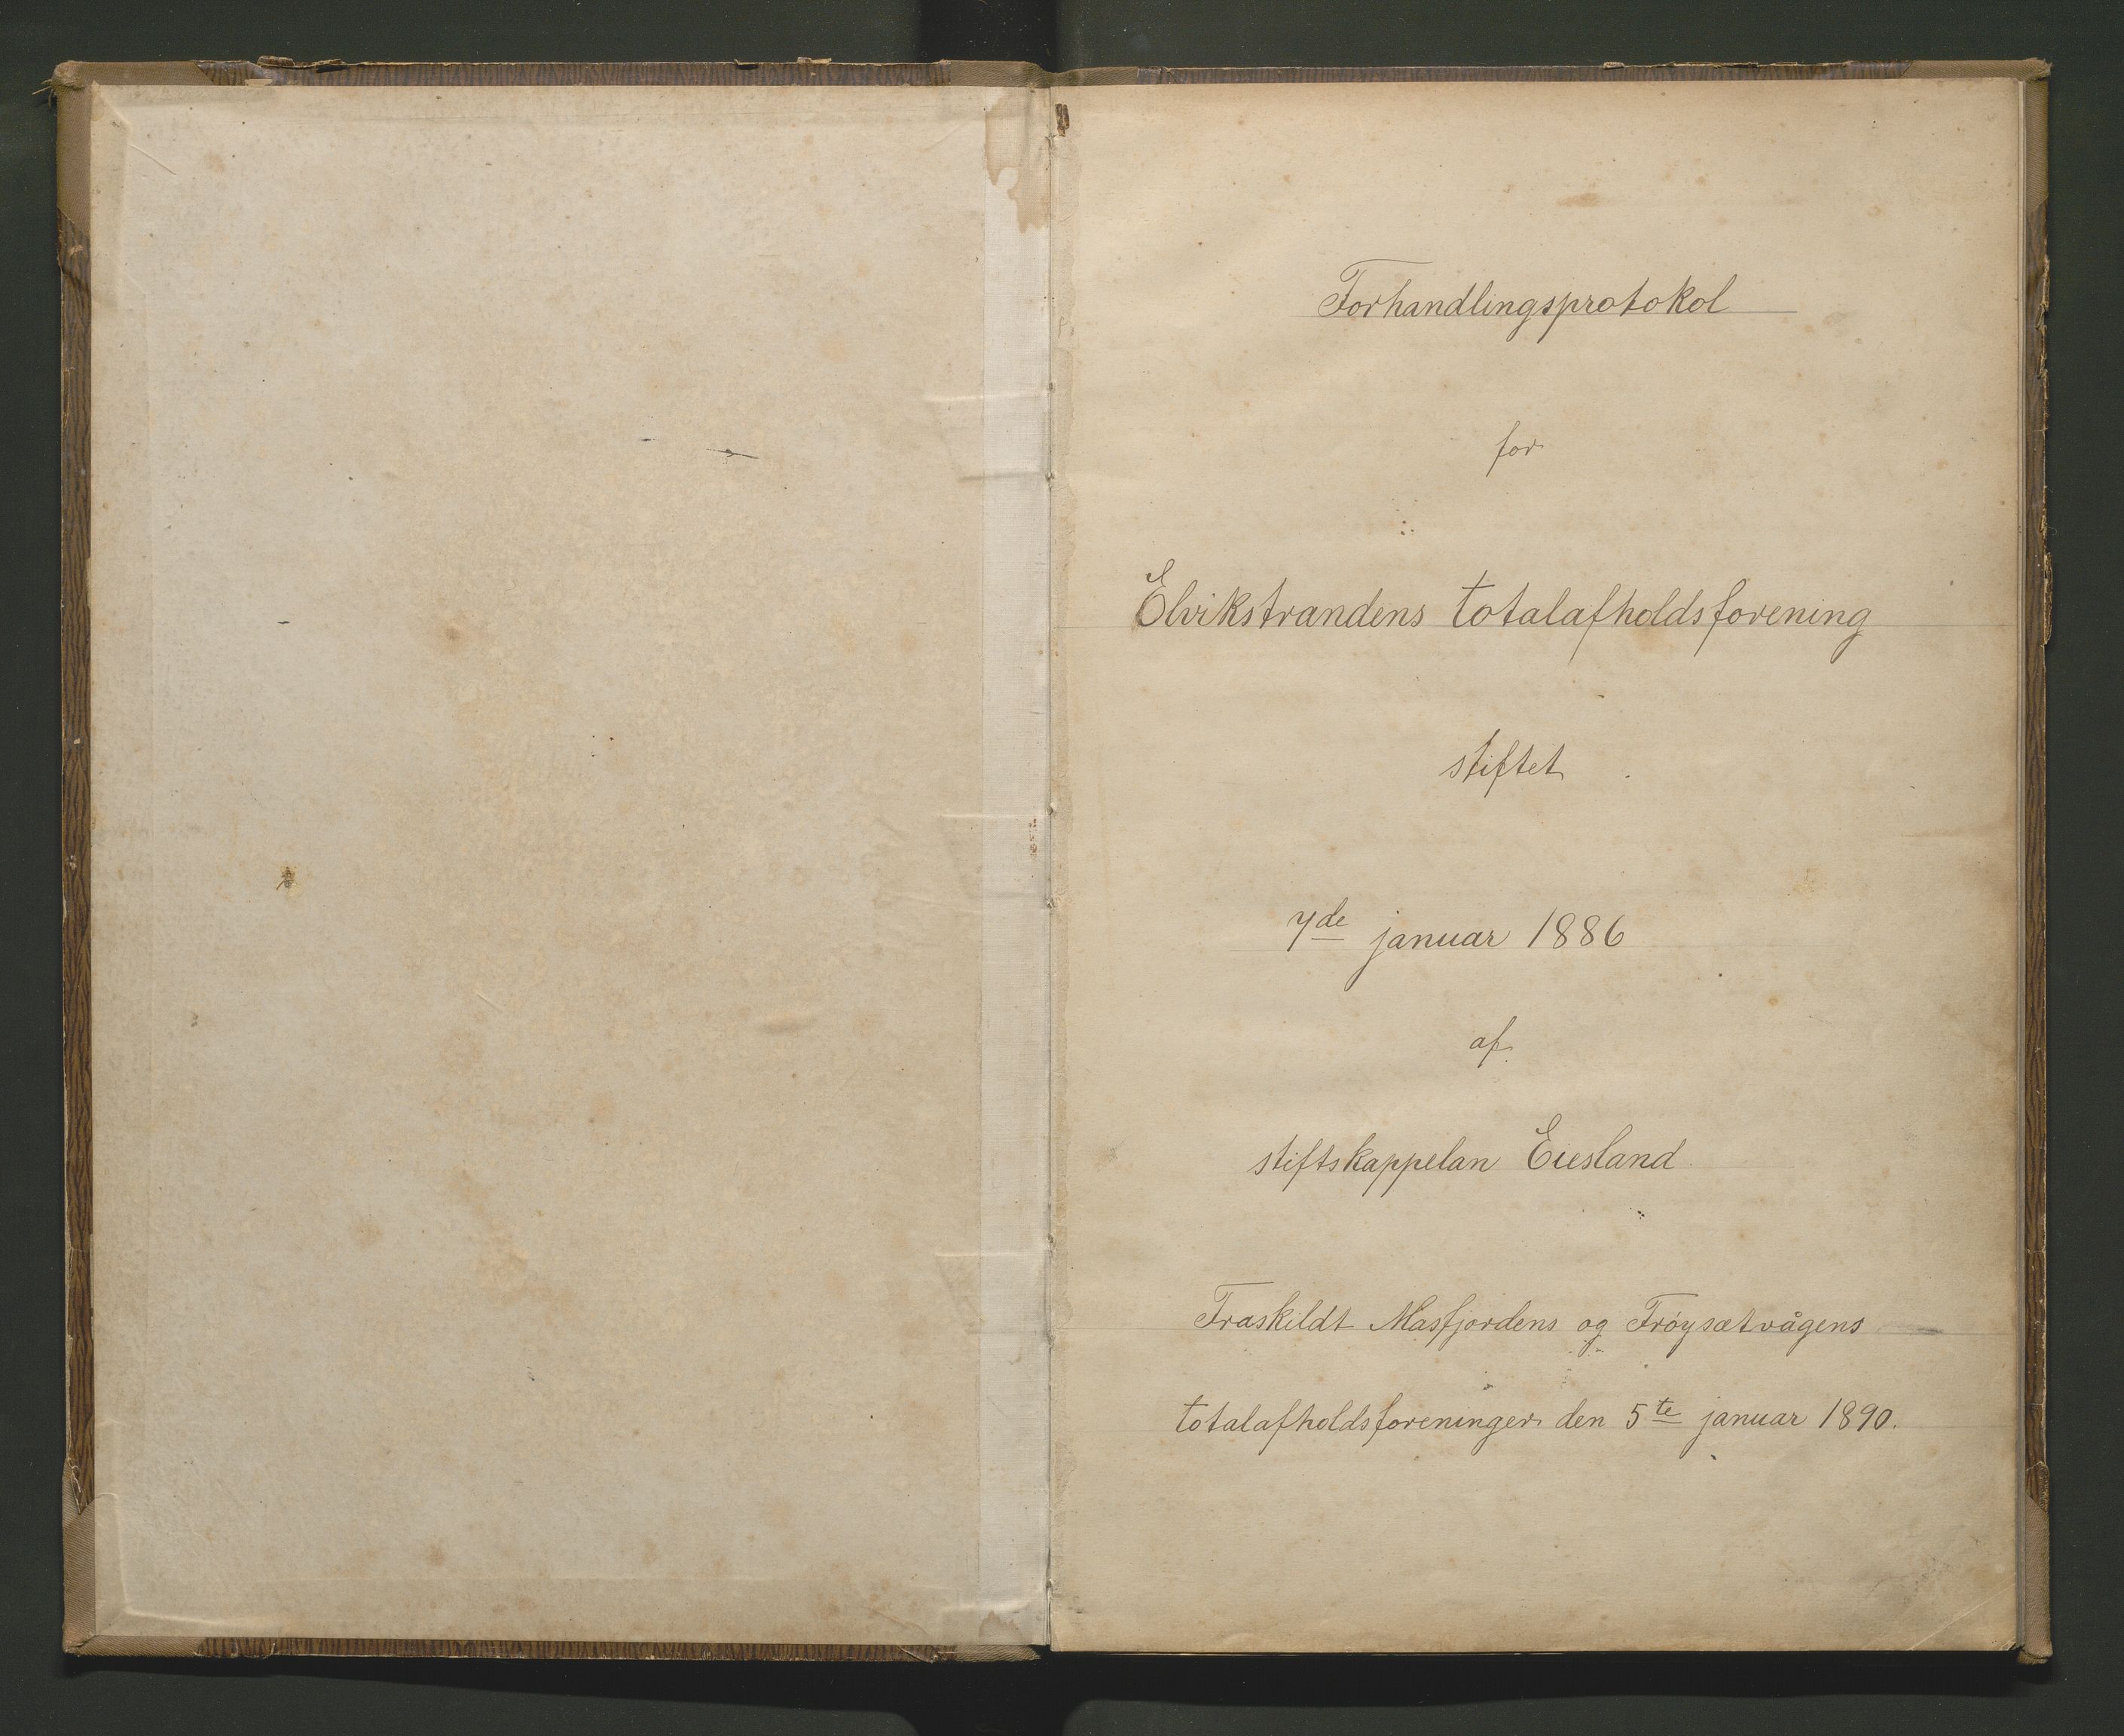 Forhandlingsprotokol
for
Elvikstrandens totalafholdsforening
stiftet
7de januar 1886
af
stiftskappelan Eiesland
Fraskildt Masfjordens og Frøysætvågens
totalafholdsforeninger den 5te januar 1890.